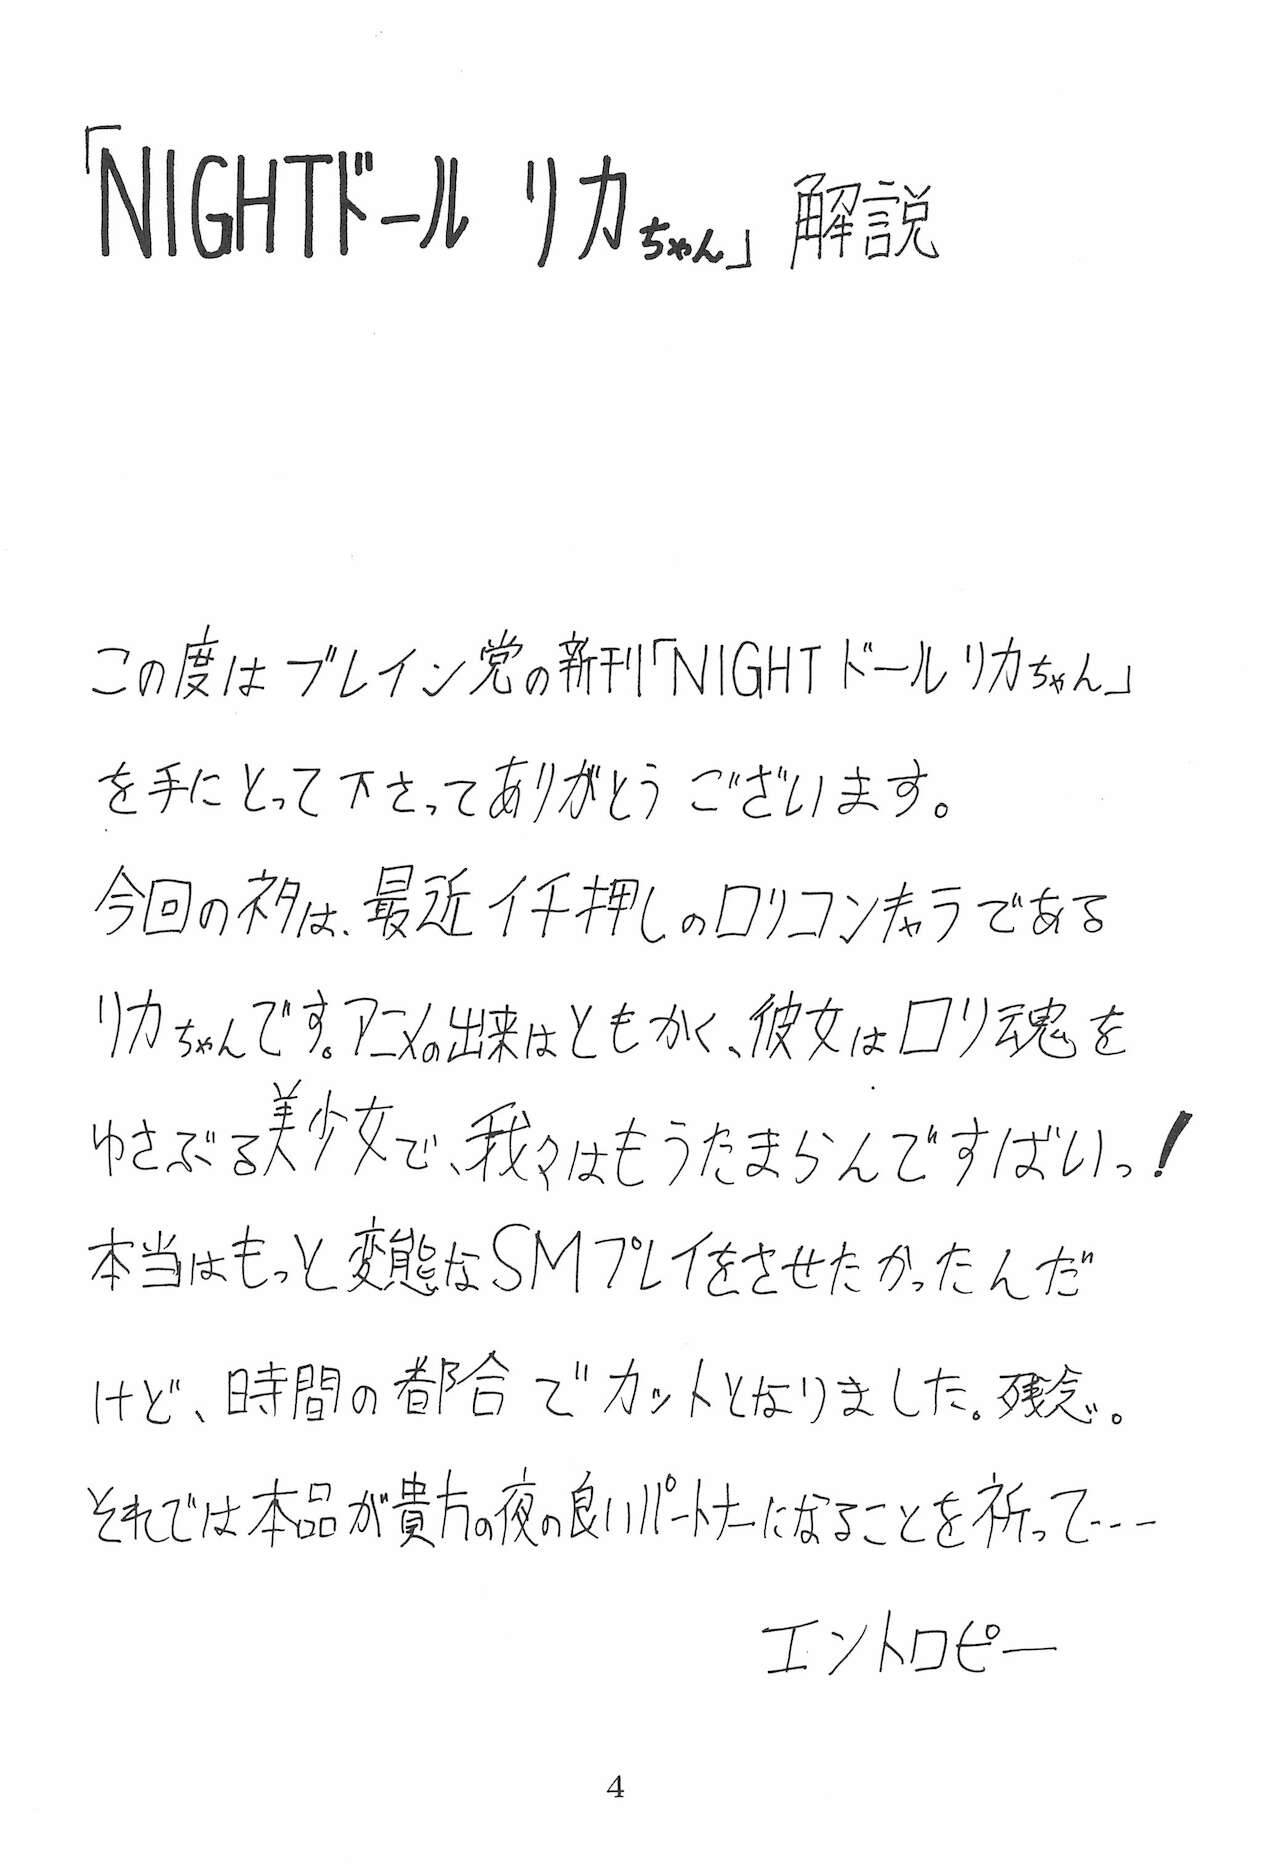 「NIGHTドール リカちゃん」解説
この度はブレイン党の新刊「NIGHTドールリカちゃん」
を手にとって下さってありがとうございます。
今回のネタは、最近イチ押しのロリコンキャラである
リカちゃんです。アニメの出来はともかく、彼女はロリ魂を
ゆさぶる美少女で、我々はもうたまらんですばいっ!
本当はもっと変態なSMプレイをさせたかったんだ
けど、時間の都合でカットとなりました。残念。
それでは本品が貴方の夜の良いパートナーになることを祈って---
エントロピー
4